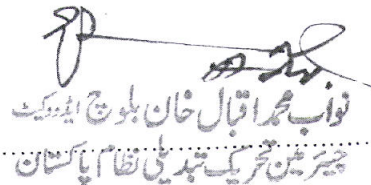 نواب محمد اقبال خان بلوچ ایڈووکیٹ
چیئرمین تحریک تبدیلی نظام پاکستان